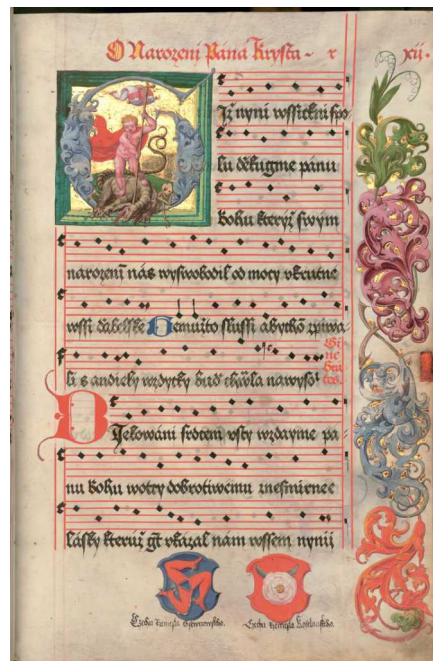 O Narozeni Pana Krysta xii
Již nyni wssickni spo
lu diekugme panu
bohu kterýž swým
narozenim nás wyswobodil od mocy vkrutne
wssi dabelske Gemužto slussi abychō zpiwa
li s andiely wzdycky bud chwala na wyso
Diekowani srdcem vsty wzdayme pa
nu bohu wotcy dobrotiwemu zie smirne e
lásky kteruž gt vkazal nám wssem nynii
Czecha Cechu